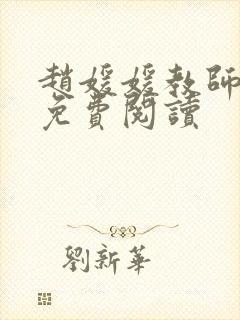 趙媛媛教師
免費閱讀
劉新華